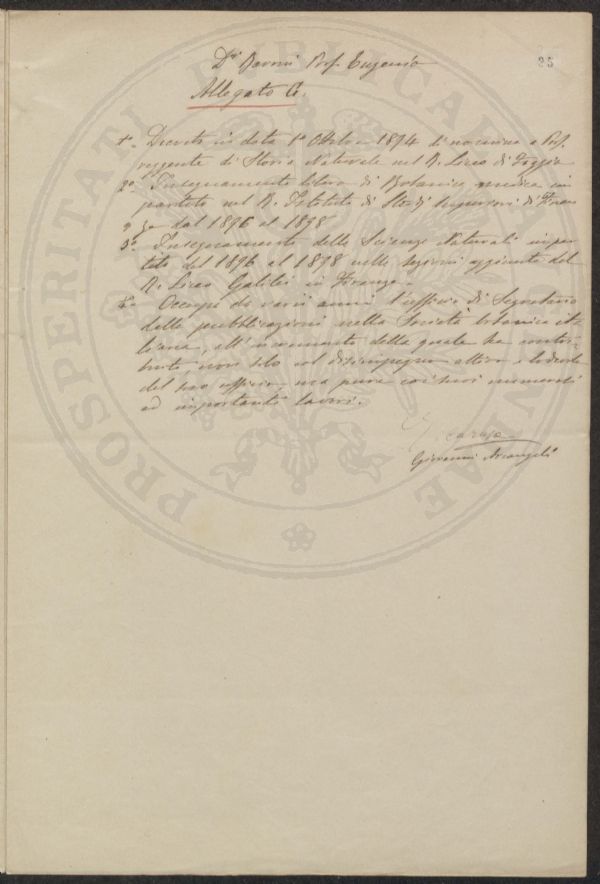 25
Dr Baroni Prof. Eugenio
Allegato G.
1o Decreto in data 1o Ottobre 1894 di nomina a Prof.
reggente di Storia Naturale nel R. Liceo di Foggia
2o Insegnamento libero di Botanica medica im
partito nel R. Istituto di Studj Superiori di Firen
ze dal 1896 al 1898
3o Insegnamento delle Scienze Naturali impar
tito dal 1896 al 1898 nelle sezioni aggiunte del
R. Liceo Galilei in Firenze.
Occupa da varii anni l'ufficio di Segretario
delle pubblicazioni nella Società botanica ita
liana, all'incremento della quale ha contri
buito, non solo col disimpegno attivo e lodevole
del suo ufficio, ma pure coi suoi numerosi
ed importanti lavori.
Caruso
Giovanni Arcangeli
PROSPERITATI PUBLICAE